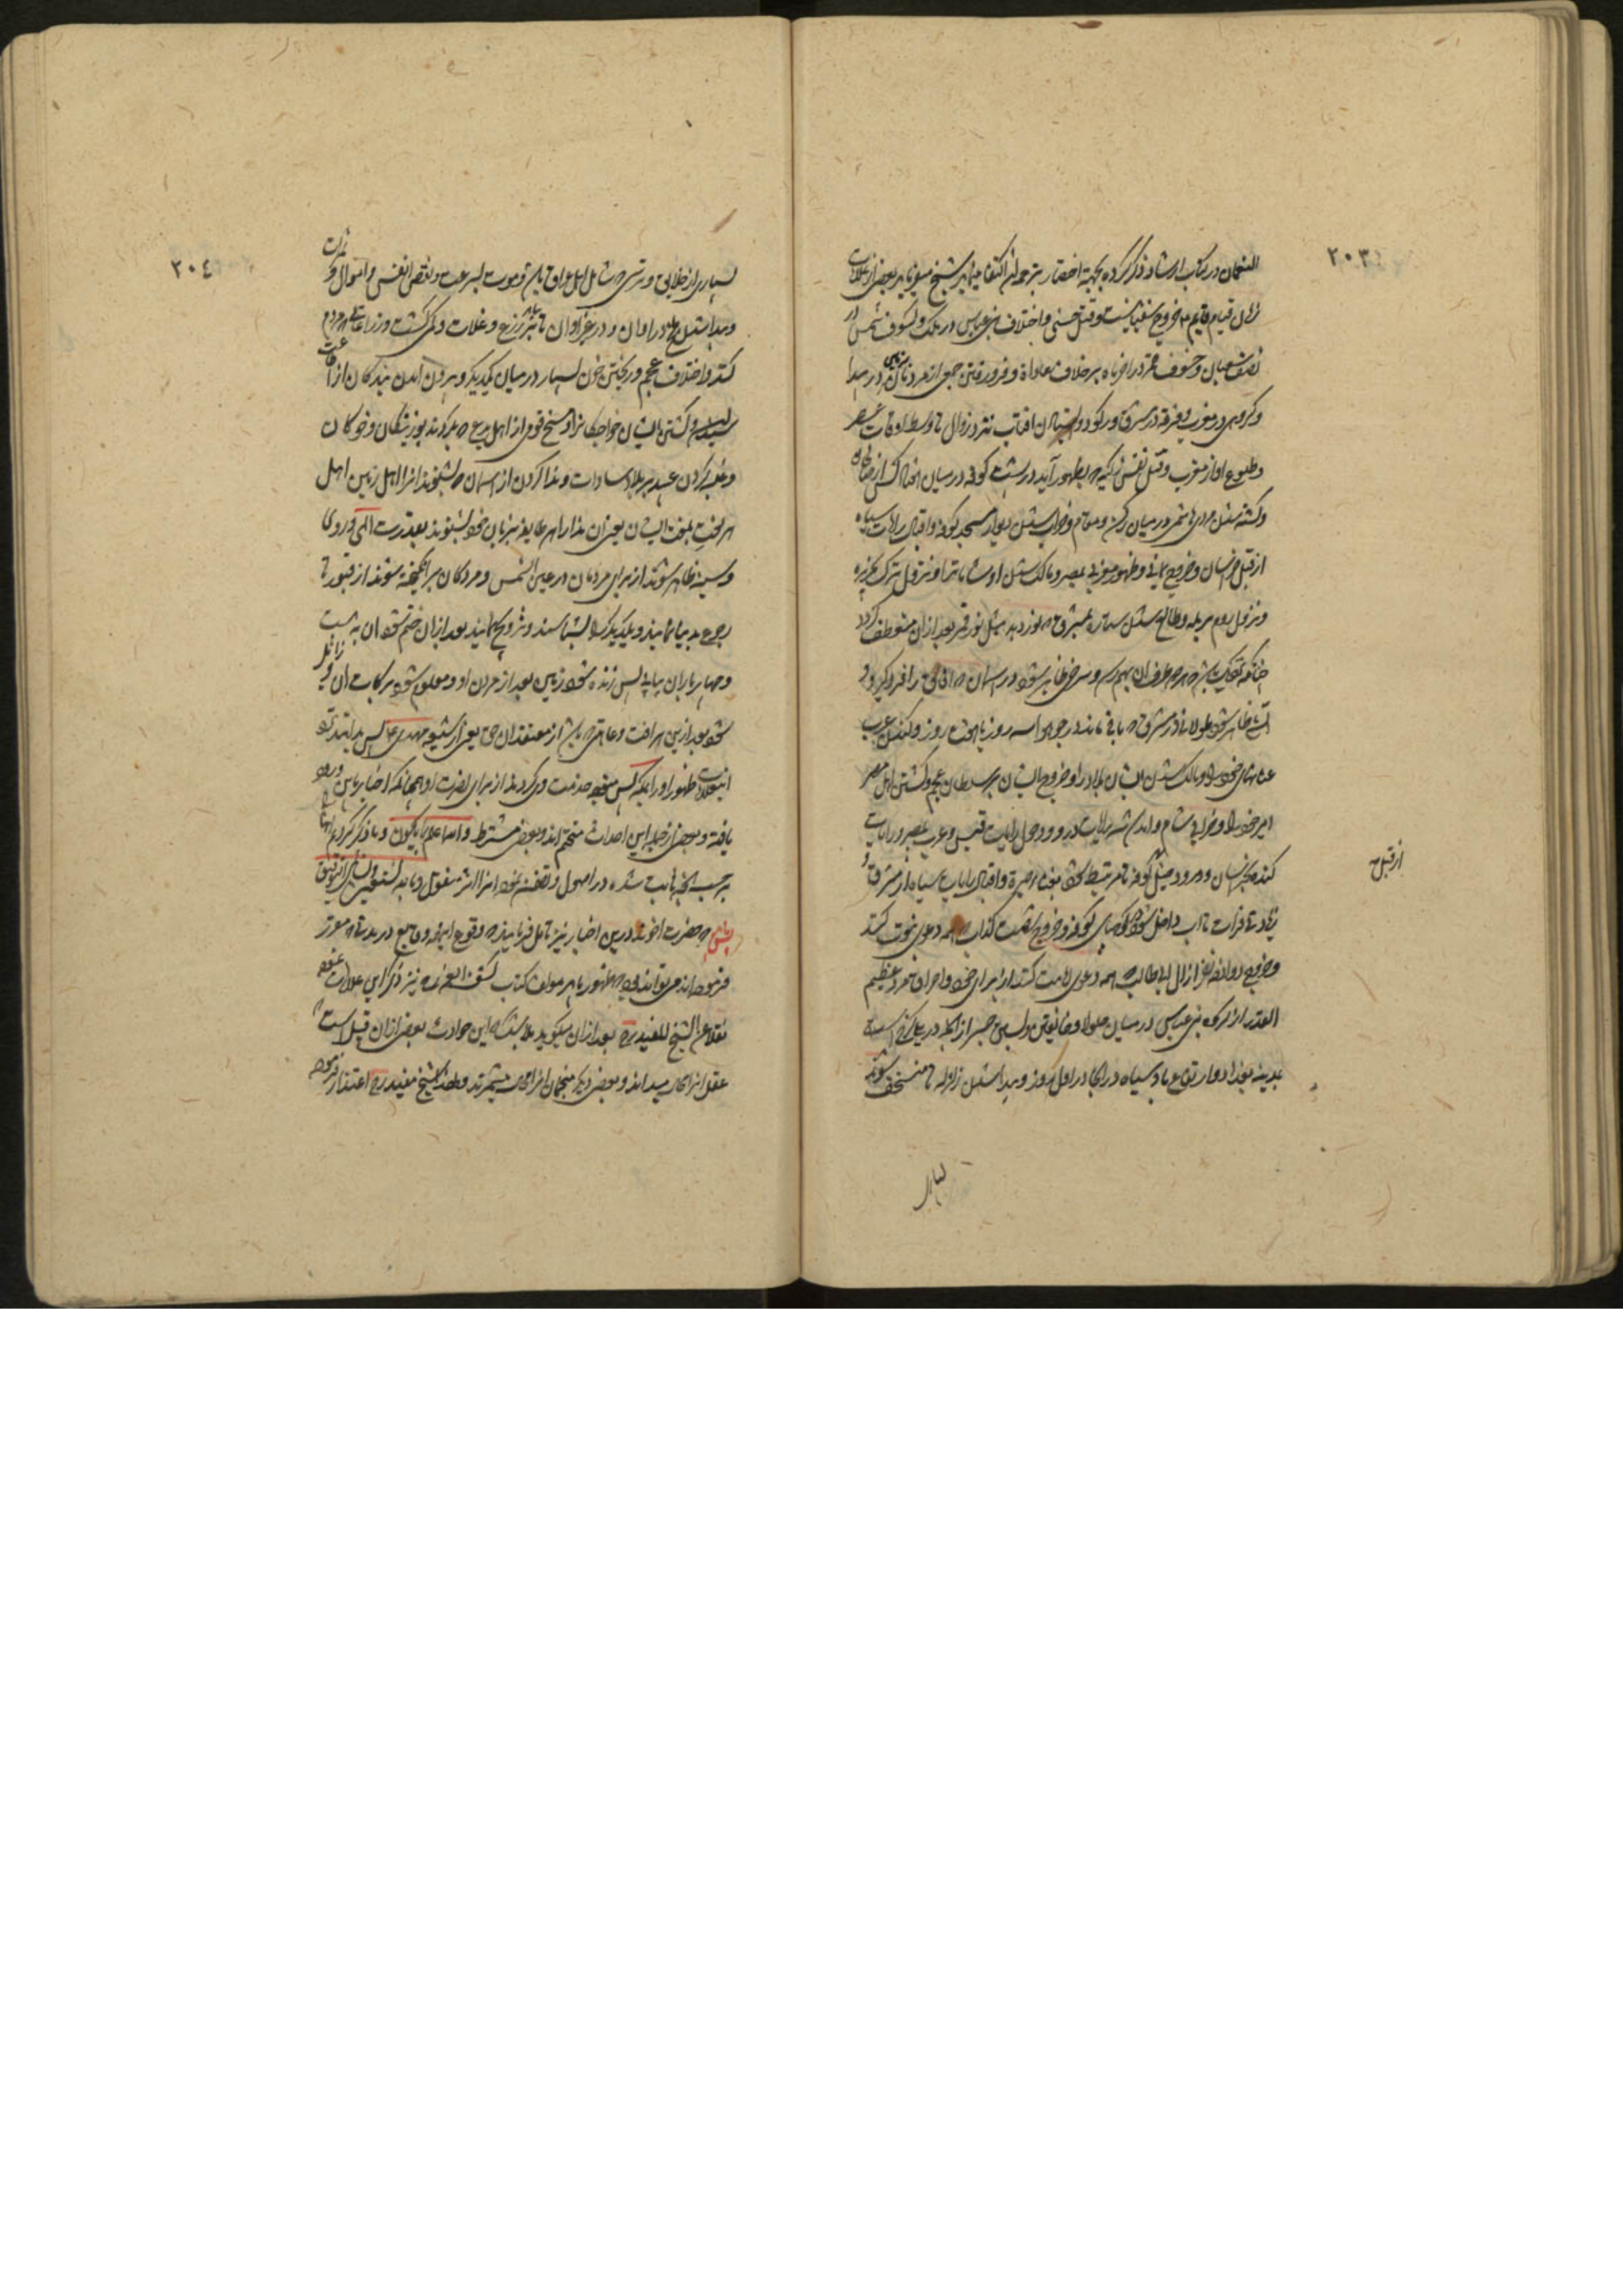 ٢٠٣
النعمان در کتاب ارشاد ذکر کرده بجهة اختصار بترجمه ان اکتفا مینماید شیخ میفرماید بعضی از علامات
زمان قیام قایم ع خروج سفیانیست و قتل حسنی و اختلاف بنی عباس در ملک و کسوف شمس در
نصف شعبان و خسوف قمر در اخر ماه بر خلاف عادات و فرو رفتن جمعی از مردمان بزمین در بیدا
و کروهی در مغرب و فرقه در مشرق و رکود و ایستادن افتاب نزد زوال تا وسط اوقات عصر
و طلوع او از مغرب و قتل نفس زکیه که بظهور آید در پشت کوفه در میان هفتاد کس از صالحان
و کشته شدن مردی هاشمی در میان رکن و مقام و خراب شدن دیوار مسجد کوفه و اقبال رایات سیاه
از قبل خراسان و خروج یمانی و ظهور مغربی بمصر و مالک شدن او شامات را و نزول ترک بجزیره
و نزول روم برمله و طالع شدن ستاره بمشرق که نور دهد مثل نور قمر بعد از آن منعطف کردد
چنانکه نزدیک شود که هر دو طرف ان بهم رسد و سرخی ظاهر شود در اسمان که افاق را فرو کیرد و
آتش ظاهر شود طولانی در مشرق که باقی ماند در جو هوا سه روز یا هفت روز و
عنانهای خود را و مالک شدن ایشان بلاد را و خروج ایشان بر سلطان عجم و کشتن اهل مصر
امیر خود را و خرابی شام و امدن سه رایات در او و دخول رایات قیس و عرب بمصر و رایات
کنده بخراسان و ورود خیل تا مربوط کنند بفناء حیره و اقبال رایات سیاه از مشرق و
از قبل
زیادتی فرات تا اب داخل شود کوچهای کوفه و خروج شصت کذاب که همه دعوی نبوت کنند
و خروج دوازده نفر از ال ابی طالب که همه دعوی امامت کنند از برای خود و احراق مرد عظیم
القدر از کروه بنی عباس در میان جلولا و خانقین و بستن جسر از در پهلوی کرخ
بمدینه بغداد و ارتفاع باد سیاه در انجا در اول روز و پیدا شدن زلزله تا منخسف شوند
بسیاری
٢٠٤
بسیاری از خلایق و ترسی که شامل اهل عراق باشد و موت بسرعت و نقص انفس و اموال و ثمرات
و پیدا شدن ملخ در اوان و در غیر اوان تا بزرع و غلات و کمی کشت و زراعتهای مردم
کنند و اختلاف عجم و ریختن خون بسیار در میان یکدیکر و بیرون امدن بندکان از اطاعت
سیدان و کشتن ایشان خواجکانرا و مسخ قومی از اهل بدع که بکردند بوزینکان و خوکان
و غلبه کردن عبید بر بلاد سادات و ندا کردن از اسمان که بشنوند انرا اهل زمین اهل
هر لغت بلغت ایشان یعنی ان ندا را هر طایفه بزبان خود بشنوند بقدرت الهی و روی
و سینه ظاهر شوند از برای مردمان در عین الشمس و مردکان برانکیخته شوند از قبور تا
رجوع بدنیا نمایند و یکدیکر را بشناسند و تزویج نمایند بعد از ان ختم شود ان به بیست
و چهار باران پیاپی پس زنده شود زمین بعد از مردن او و معلوم شود برکات ان و زایل
شود بعد از این هر افت و عاهتی که باشد از معتقدان حق یعنی از شیعه مهدی ع پس بدانند نزد
این علامات ظهور او را بمکه پس متوجه خدمت وی کردند از برای نصرت او همچنانکه اخبار باین ورود
یافته و بعضی از جمله این احداث محتم اند و بعضی مشترط والله اعلم بما یکون و ما ذکر کردیم انها را
بر حسب انچه ثابت شده در اصول و تضمن نموده انرا اثر منقول و بالله نستعین و ایاه نسئل التوفیق
حضرت اخوند درین اخبار نیز تامل فرمایند که وقوع انچه وقایع در مدت که مقرر
فرموده اند می تواند بود که ظهور یابد مولف کتاب کشف الغمه نیز ذکر این علامات نموده
نقلا عن الشیخ المفید ره بعد از ان میکوید بلا شک این حوادث بعضی از ان قبیل است که
عقل انرا محال میداند و بعضی دیکر منجمان انرا محال میشمرند و لهذا شیخ مفید ره اعتذار نموده